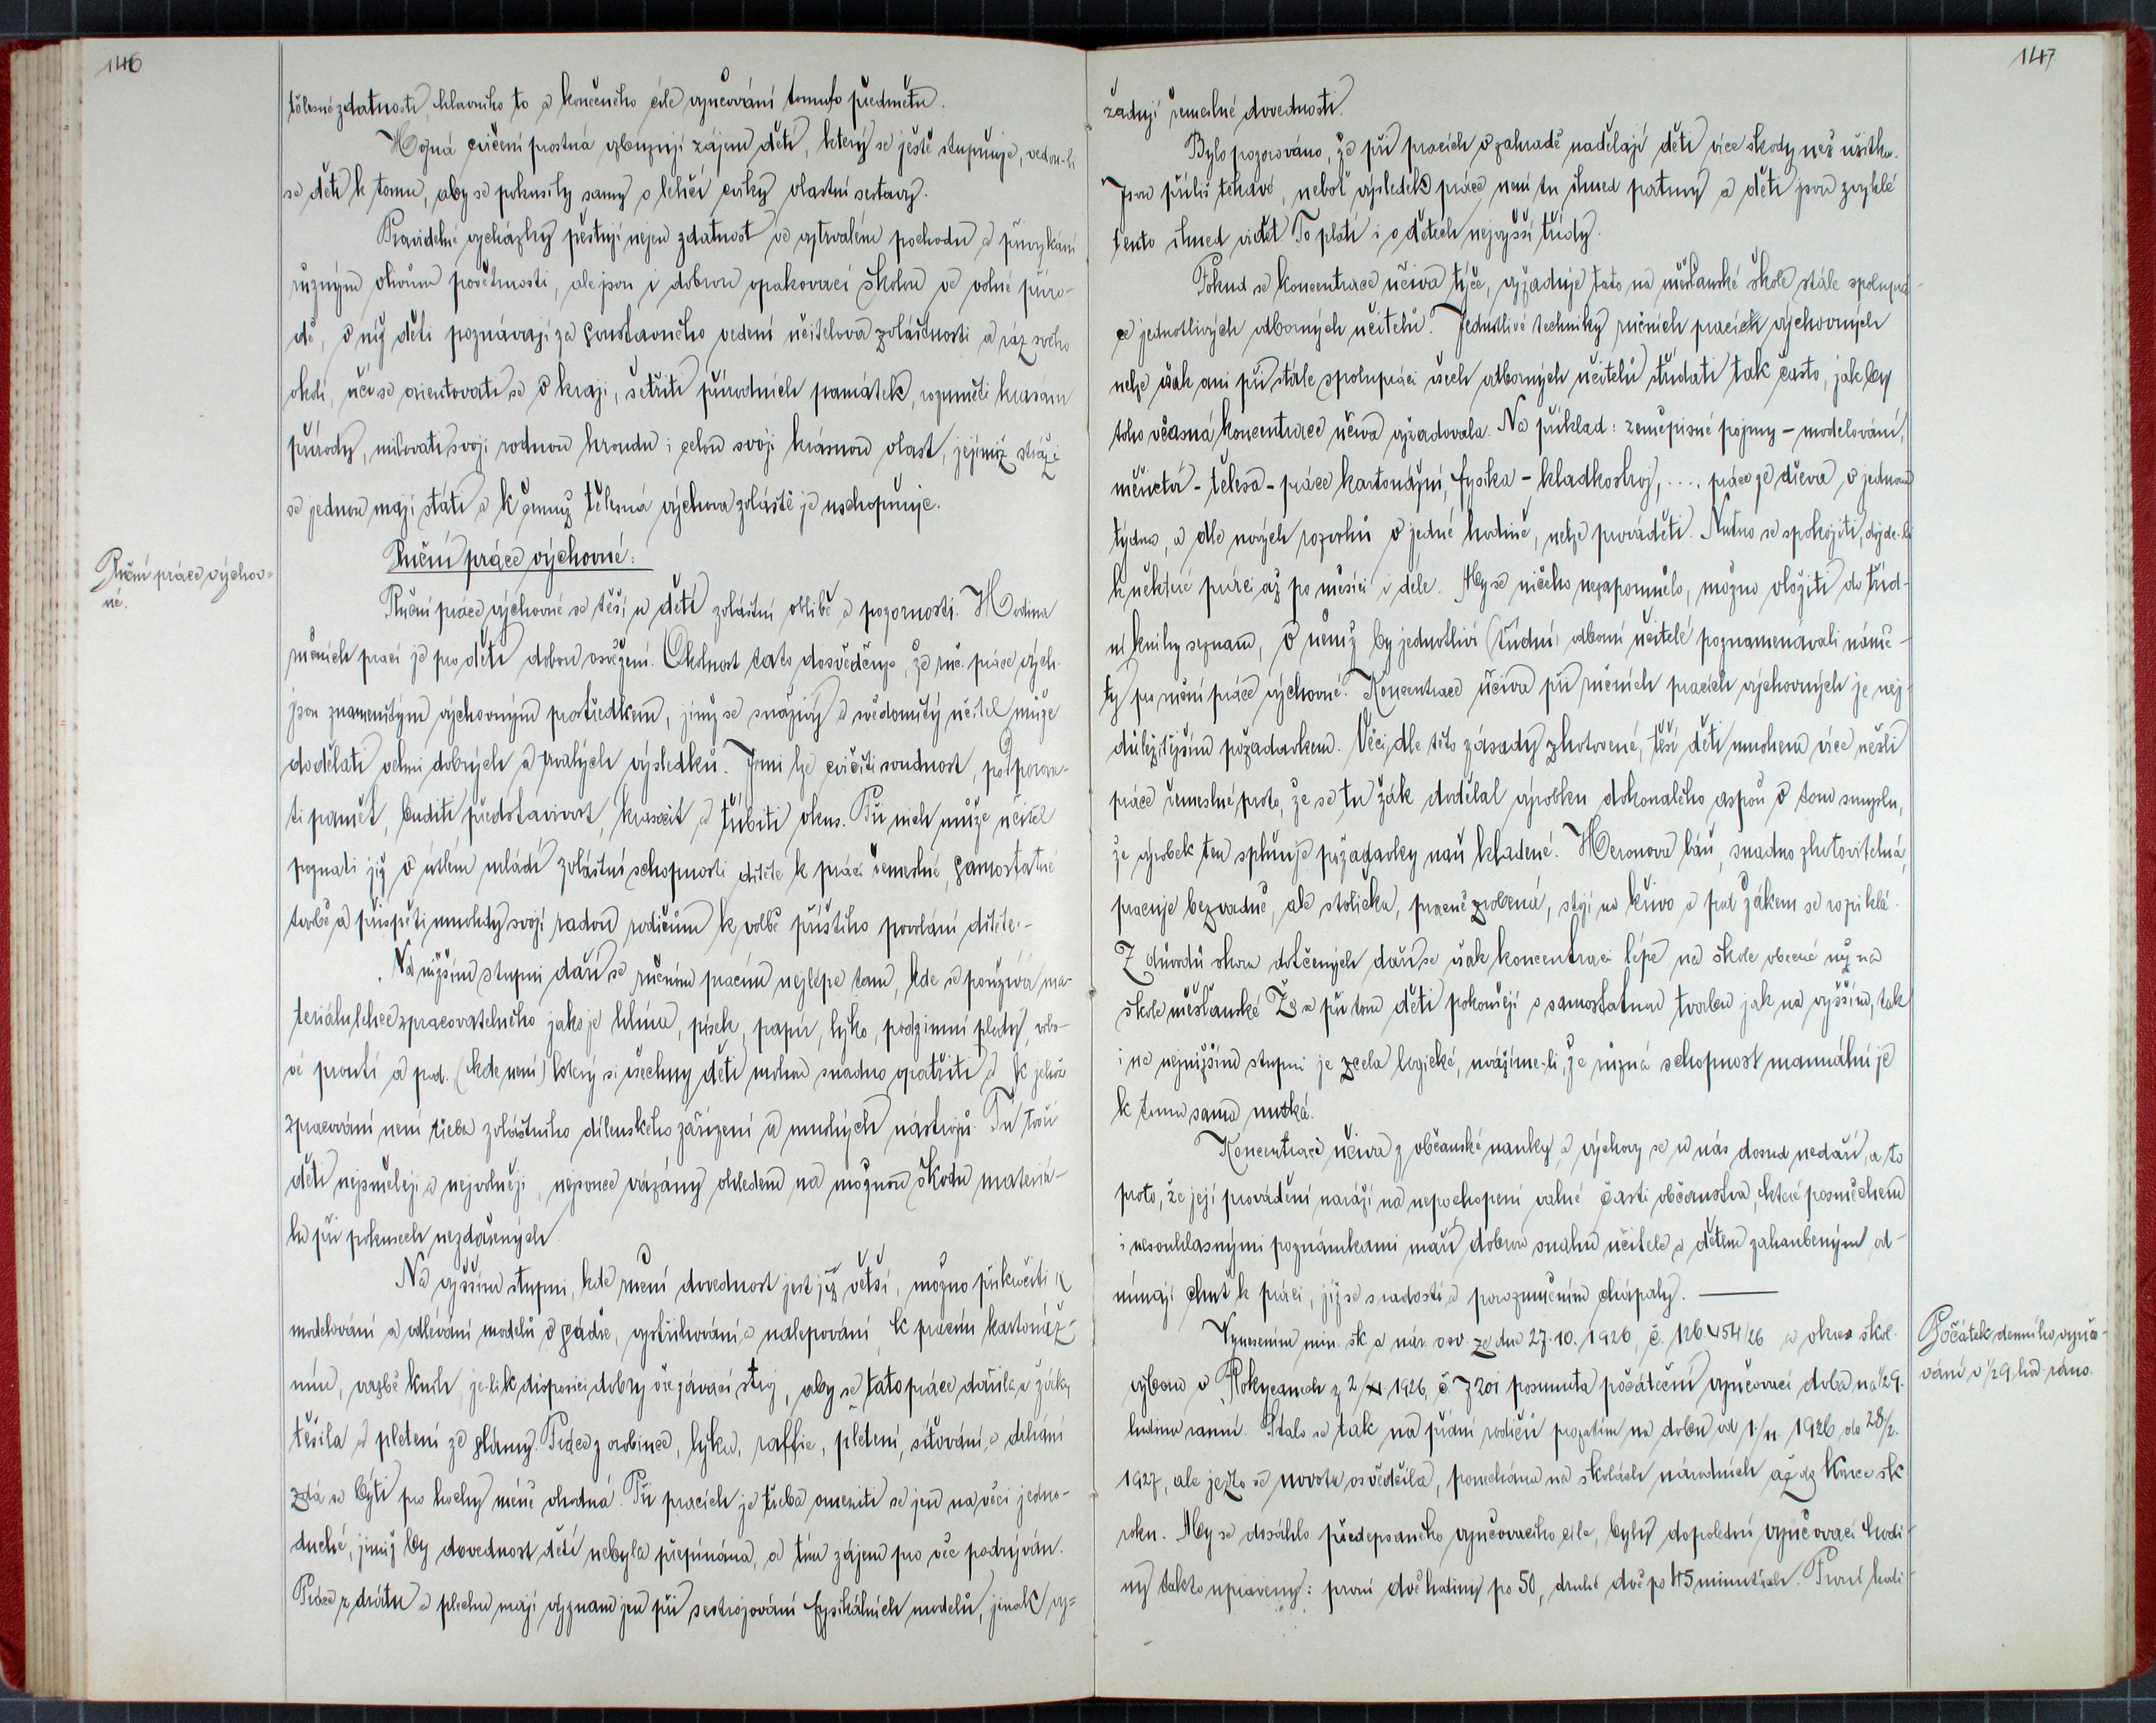 146
tělesné zdatnosti, hlavního to a konečného cíle vyučování tomuto předmětu.
Hojná cvičení prostná vzbuzují zájem dětí, který se ještě stupňuje, vedou-li
se děti k tomu, aby se pokusily samy o lehčí cviky vlastní sestavy.
Pravidelné vycházky pěstují nejen zdatnost ve vytrvalém pochodu a přivykání
různým vlivům povětrnosti, ale jsou i dobrou opakovací školou ve volné příro-
dě, v níž děti poznávají za soustavného vedení učitelova zvláštnosti a ráz svého
okolí, učí se orientovati se v kraji, šetřiti přírodních památek, rozuměti krásám
přírody, milovati svoji rodnou hroudu i celou svoji krásnou vlast, jejímiž strážci
se jednou mají státi a k čemuž tělesná výchova zvláště je uschopňuje.
Ruční práce výchov-
né.
Ruční práce výchovné:
Ruční práce výchovné se těší u dětí zvláštní oblibě a pozornosti. Hodina
ručních prací je pro děti dobou osvěžení. Okolnost tato dosvědčuje, že ruč. práce vých.
jsou znamenitým výchovným prostředkem, jímž se snaživý a svědomitý učitel může
dodělati velmi dobrých a trvalých výsledků. Jimi lze cvičiti soudnost, podporova-
ti paměť, buditi představivost, krasocit a tříbiti vkus. Při nich může učitel
poznati již v útlém mládí zvláštní schopnosti dítěte k práci řemeslné, samostatné
tvorbě a přispěti mnohdy svojí radou rodičům k volbě příštího povolání dítěte.-
Na nižším stupni daří se ručním pracím nejlépe tam, kde se používá ma-
teriálu lehce zpracovatelného jako je hlína, písek, papír, lýko, podzimní plody, vrbo-
vé proutí a pod. (kde není) který si všechny děti mohou snadno opatřiti a k jehož
zpracování není třeba zvláštního dílenského zařízení a mnohých nástrojů. Tu tvoří
děti nejsměleji a nejvolněji, nejsouce vázány ohledem na možnou škodu materiá-
lu při pokusech nezdařených.
Na vyšším stupni, kde ruční dovednost jest již větší, možno přikročiti k
modelování a odlévání modelů v sádře, vystřihování a nalepování, k pracím kartonáž-
ním, vazbě knih, je-li k disposici dobrý ořezávací stroj, aby se tato práce dařila a žáky
těšila a pletení ze slámy. Práce z orobince, lýka, raffie, pletení, síťování a drhání
zdá se býti pro hochy méně vhodná. Při pracích je třeba omeziti se jen na věci jedno-
duché, jimiž by dovednost dětí nebyla přepínána, a tím zájem pro věc podrýván.
Práce z drátu a plechu mají význam jen při sestrojování fysikálních modelů, jinak vy-
147
žadují řemeslné dovednosti.
Bylo pozorováno, že při pracích v zahradě nadělají děti více škody než užitku.
Jsou příliš těkavé, neboť výsledek práce není tu ihned patrný a děti jsou zvyklé
tento ihned viděti. To platí i o dětech nejvyšší třídy.
Pokud se koncentrace učiva týče, vyžaduje tato na měšťanské škole stále spoluprá-
ce jednotlivých odborných učitelů. Jednotlivé techniky ručních pracích výchovných
nelze však ani při stále spolupráci všech odborných učitelů střídati tak často, jak by
toho včasná koncentrace učiva vyžadovala. Na příklad: zeměpisné pojmy - modelování,
měřictví - tělesa - práce kartonážní, fysika - kladkostroj, .... práce ze dřeva, v jednom
týdnu, a dle nových rozvrhů v jedné hodině, nelze prováděti. Nutno se spokojiti, dojde-li
k některé práci až po měsíci i déle. Aby se ničeho nezapomnělo, možno vložiti do tříd-
ní knihy seznam, v němž by jednotliví (třídní) odborní učitelé poznamenávali námě-
ty pro ruční práce výchovné. Koncentrace učiva při ručních pracích výchovných je nej-
důležitějším požadavkem. Věci, dle této zásady zhotovené, těší děti mnohem více nežli
práce řemeslné proto, že se tu žák dodělal výrobku dokonalého aspoň v tom smyslu,
že výrobek ten splňuje požadavky naň kladené. Heronova báň, snadno zhotovitelná,
pracuje bezvadně, ale stolička, pracně zrobená, stojí na křivo a pod žákem se rozviklá.
Z důvodů shora dotčených daří se však koncentraci lépe na škole obecné než na
škole měšťanské. Že se při tom děti pokoušejí o samostatnou tvorbu jak na vyšším, tak
i na nejnižším stupni je zcela logické, uvážíme-li, že různá schopnost manuální je
k tomu sama nutká.
Koncentrace učiva z občanské nauky a výchovy se u nás dosud nedaří, a to
proto, že její provádění naráží na nepochopení valné části občanstva, které posměchem
i nesouhlasnými poznámkami maří dobrou snahu učitele a dětem zahanbeným od-
nímají chuť k práci, již se s radostí a porozuměním chápaly. ———
Počátek denního vyučo-
vání v 1/2 9. hod. ráno.
Vynesením min. šk. a nár. osv. ze dne 27. 10. 1926, č. 126.454/26 a okres. škol.
výboru v Rokycanech z 2/XI. 1926, č. 7201 posunuta počáteční vyučovací doba na 1/2 9.
hodinu ranní. Stalo se tak na přání rodičů prozatím na dobu od 1./11. 1926 do 28/2.
1927, ale ježto se novota osvědčila, ponechána na školách národních až do konce šk.
roku. Aby se dosáhlo předepsaného vyučovacího cíle, byly dopolední vyučovací hodi-
ny takto upraveny: první dvě hodiny po 50, druhé dvě po 45 minutách. První hodi-